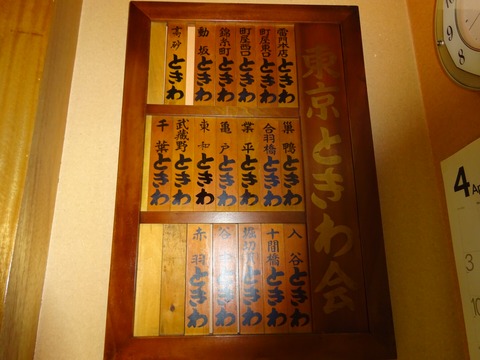 東京ときわ会
雷門本店ときわ
町屋東口ときわ
町屋西口ときわ
錦糸町ときわ
動坂ときわ
高砂ときわ
巣鴨ときわ
合羽橋ときわ
業平ときわ
亀戸ときわ
東和ときわ
武蔵野ときわ
千葉ときわ
入谷ときわ
十間橋ときわ
ときわ
ときわ
赤羽ときわ
4
9
8
3
10